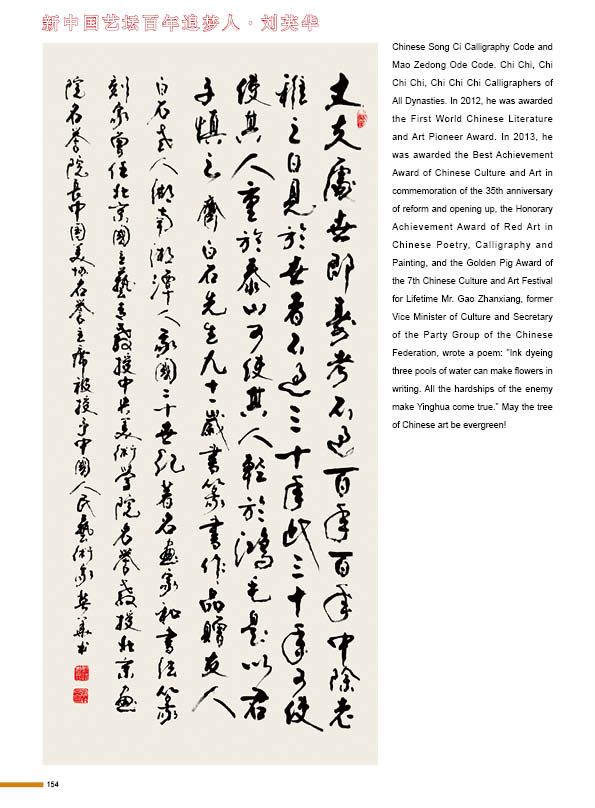 新中国艺坛百年追梦人·刘英华
丈夫處世即壽考不過百年百年中除老
稚之日見於世者不過三十年此三十年可使
使其人重於泰山可使其人輕於鴻毛是以君
子慎之齊白石先生九十一歲書篆書作品贈友人
白石老人湖南湘潭人我國二十世紀著名畫家和書法篆
刻家曾任北京國立藝專教授中央美術學院名譽教授北京畫
院名譽院長中国美协名譽主席被授予中國人民藝術家英華书
Chinese Song Ci Calligraphy Code and
Mao Zedong Ode Code. Chi Chi, Chi
Chi Chi, Chi Chi Chi Calligraphers of
All Dynasties. In 2012, he was awarded
the First World Chinese Literature
and Art Pioneer Award. In 2013, he
was awarded the Best Achievement
Award of Chinese Culture and Art in
commemoration of the 35th anniversary
of reform and opening up, the Honorary
Achievement Award of Red Art in
Chinese Poetry, Calligraphy and
Painting, and the Golden Pig Award of
the 7th Chinese Culture and Art Festival
for Lifetime Mr. Gao Zhanxiang, former
Vice Minister of Culture and Secretary
of the Party Group of the Chinese
Federation, wrote a poem: "Ink dyeing
three pools of water can make flowers in
writing. All the hardships of the enemy
make Yinghua come true." May the tree
of Chinese art be evergreen!
154